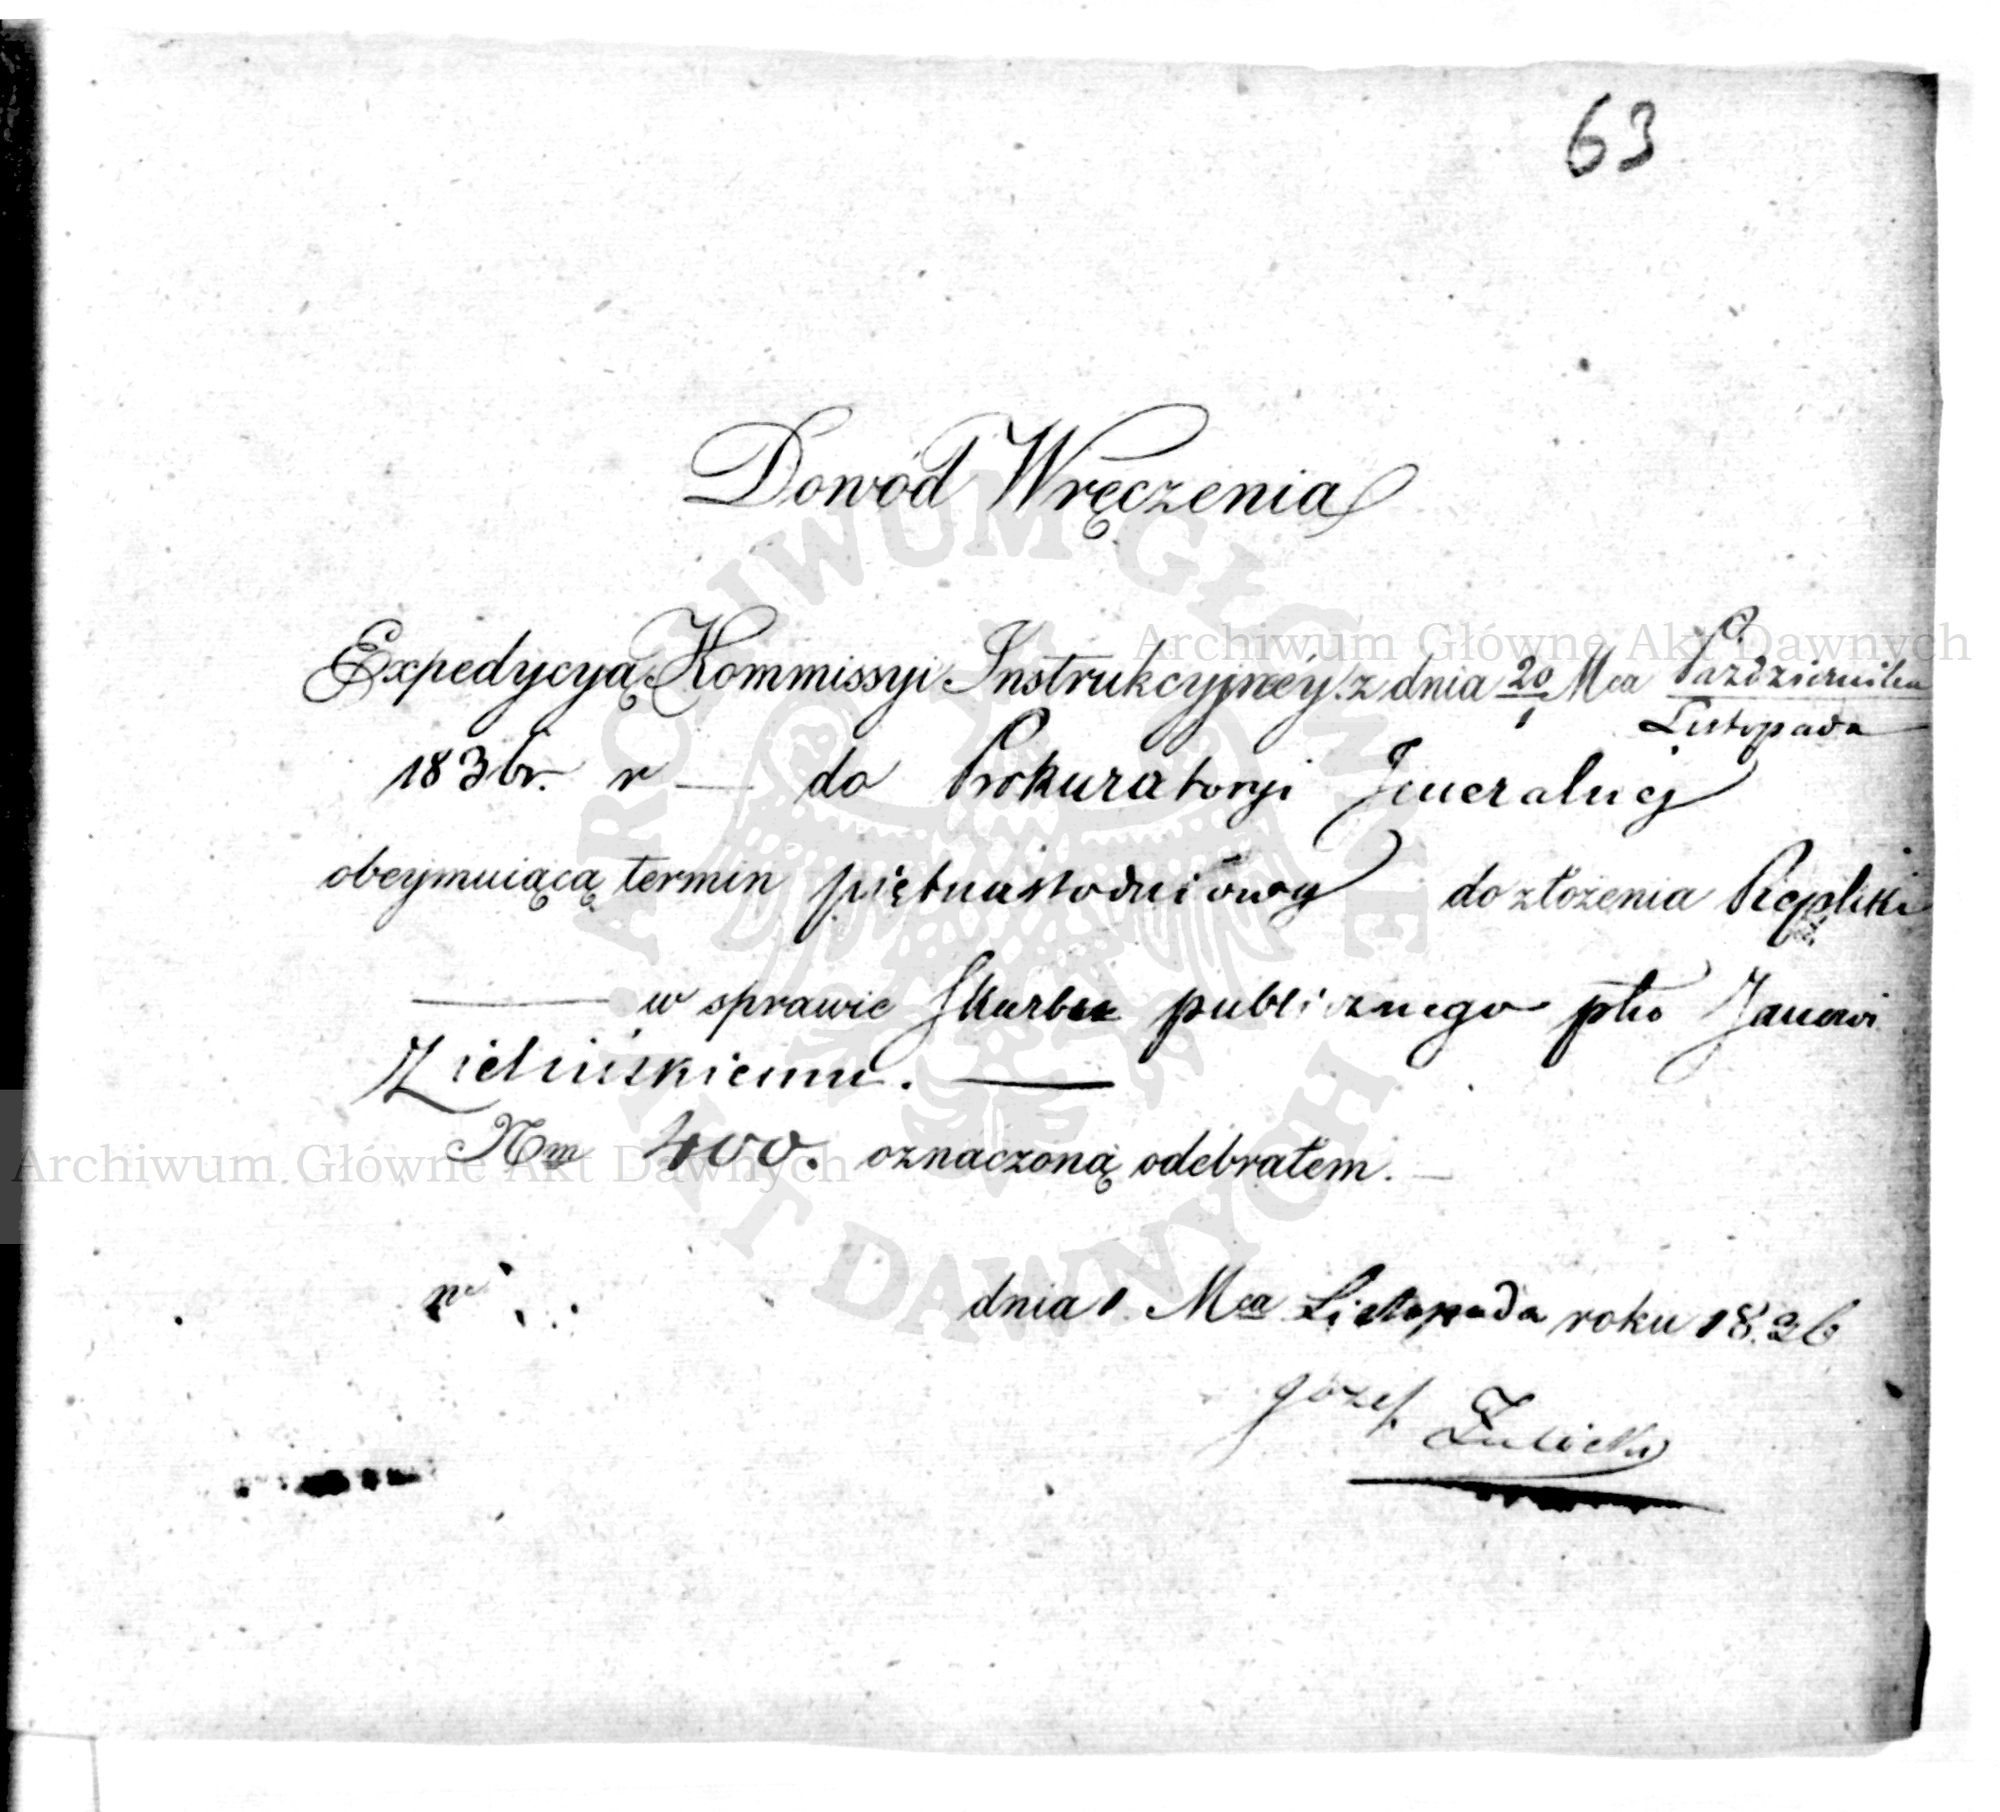 63
Dowód Wręczenia
Expedycyą Kommissyi Instrukcyjnéy z dnia 20/1 Mca Października/Listopada
1836r. r — do Prokuratoryi Jeneralnej
obeymuiącą termin piętnastodniowy do złożenia Repliki
— w sprawie Skarbu publicznego pko Janowi
Zielińskiemu. —
Nm 400. oznaczoną odebrałem. —
dnia 1 Mca Listopada roku 1836
Józef
Archiwum Główne Akt Dawnych
Archiwum Główne Akt Dawnych
ARCHIWUM GŁÓWNE AKT DAWNYCH